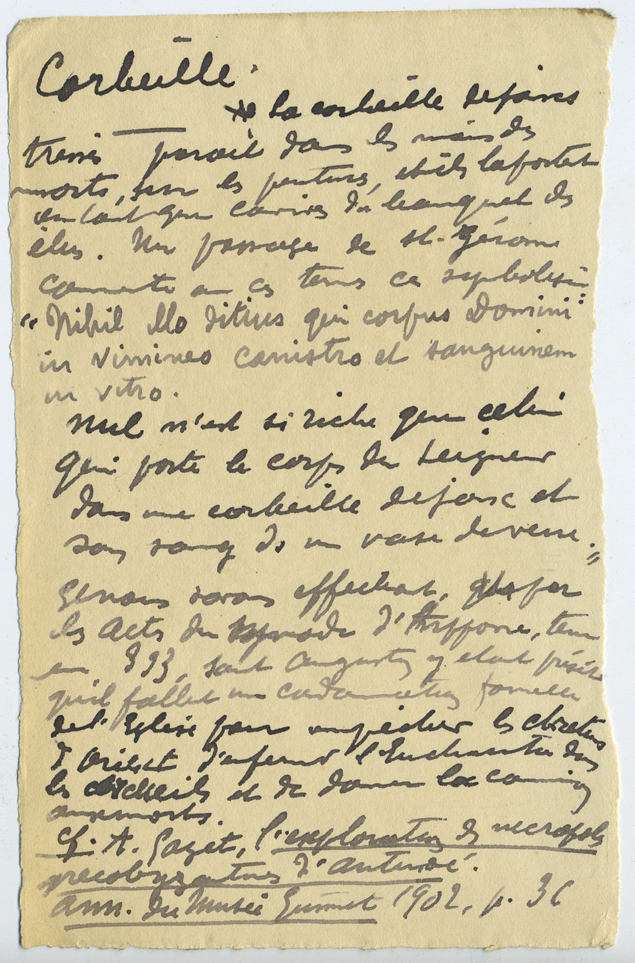 Corbeille.
* la corbeille de joncs
tressés paraît dans les mains des
morts, sur les peintures, et ils la portent
en tant que convives du banquet des
élus. Un passage de st. Gérome
commente en ces termes ce symbolisme:
"Nihil illo ditius qui corpus Domini
in vimineo canistro et sanguinem
in vitro.
Nul n'est si riche que celui
qui porte le corps du Seigneur
dans une corbeille de jonc et
son sang ds un vase de verre."
Et nous savons effectivt, par
les Acts du synode d'Hippone, tenu
en 393, saint Augustin y étant présent
qu'il fallut une condamnation formelle
de l'Eglise pour empêcher les chrétiens
d'Orient d'enfermer l'Eucharistie dans
les cercueils et de donner la communion
aux morts.
Cf. A. Gayet, l'exploration des necropoles
greco byzantines d'Antinoé.
Ann. du Musée Guimet 1902, p. 36